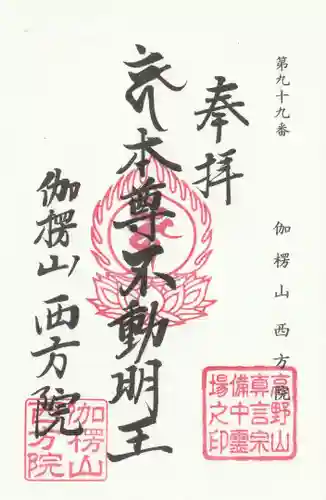 第九十九番
伽楞山西方院
奉拝
本尊不動明王
伽楞山西方院
高野山
真言宗
備中霊
場之印
伽楞山
西方院